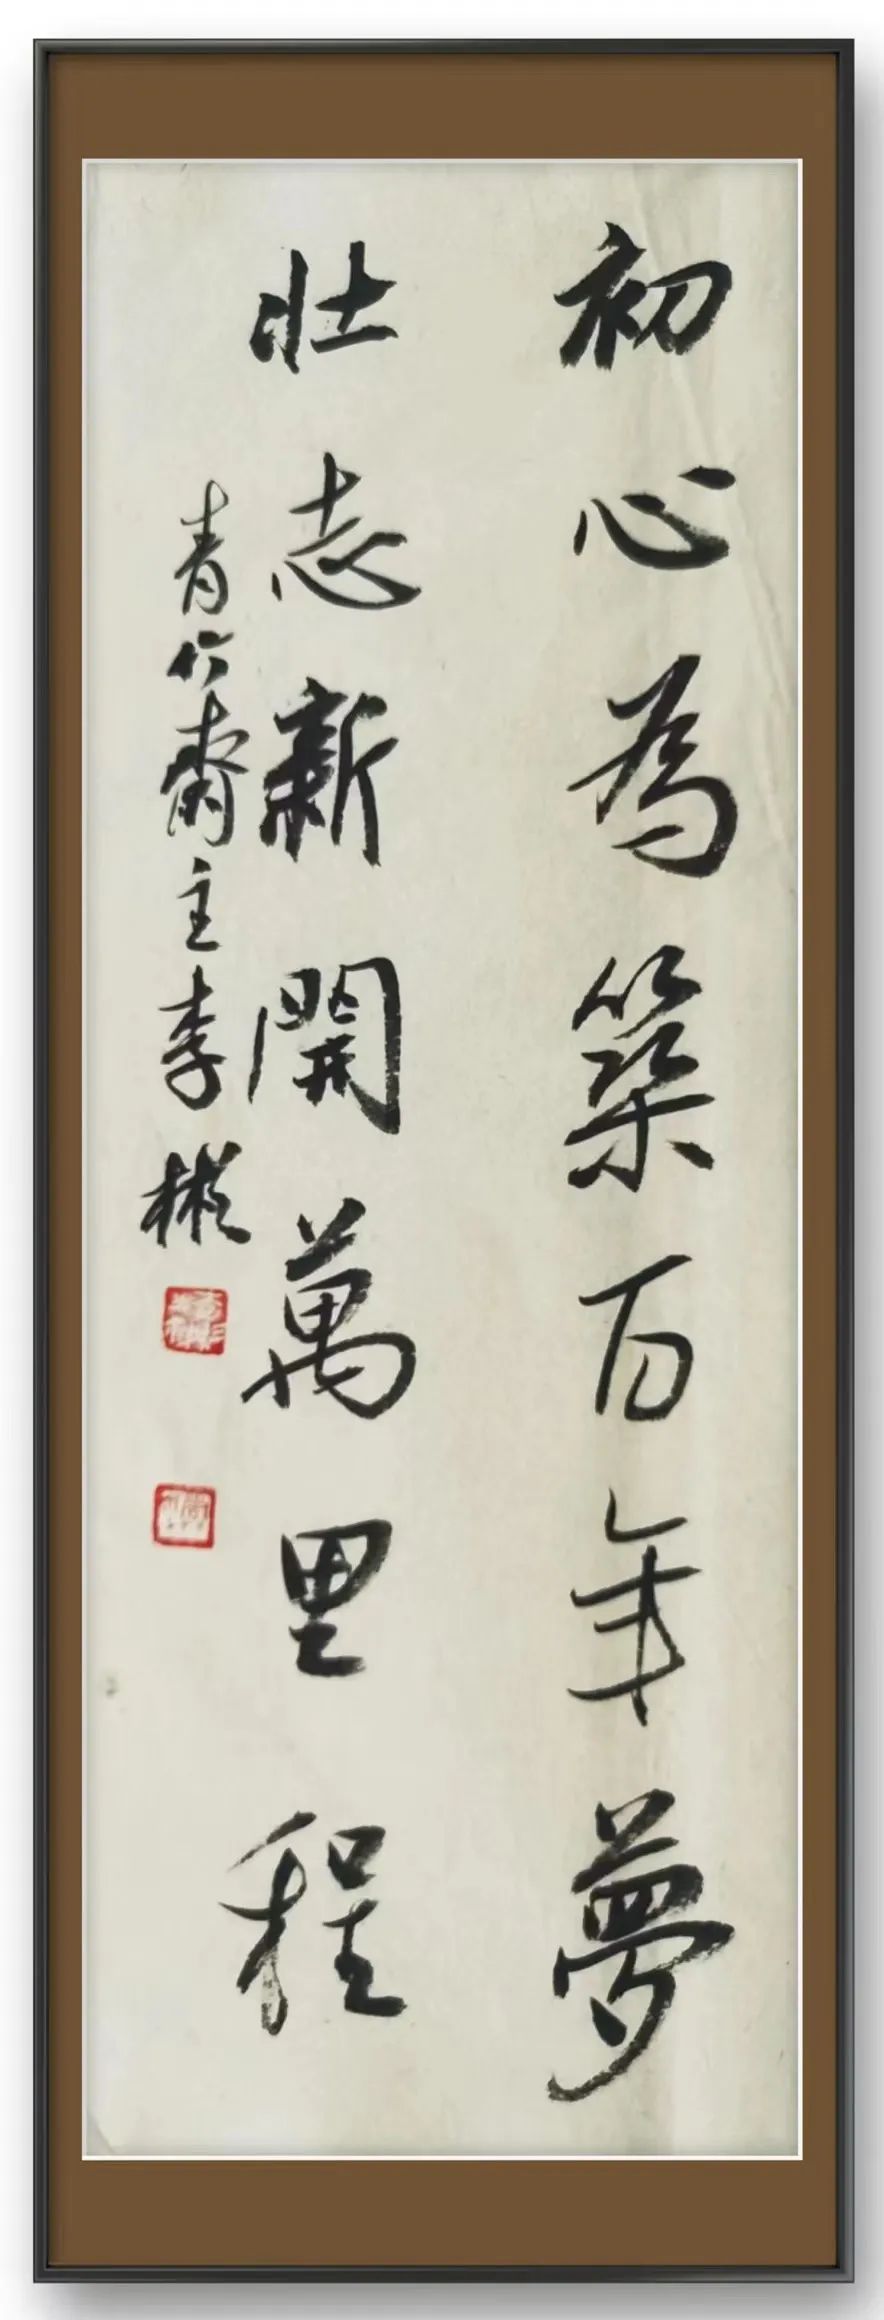 初心為築百年夢
壯志新開萬里程
青竹齋主李彬